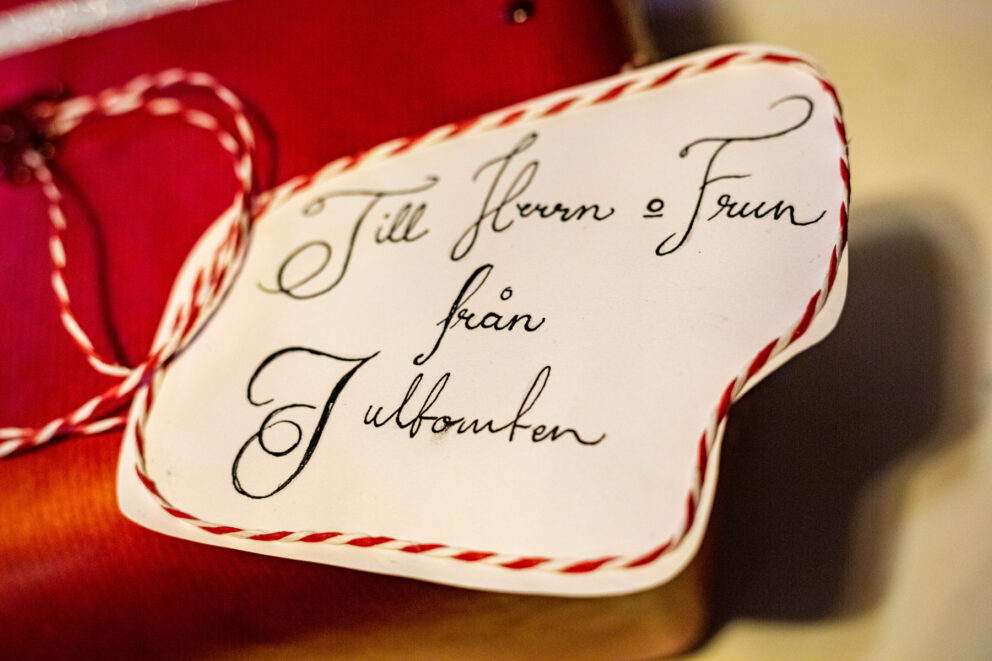 Till Herrn o Frun
från
Jultomten